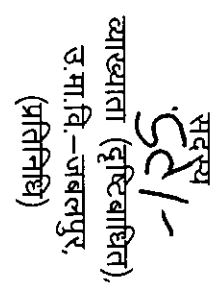 सदस्य
व्याख्याता (दृष्टिबाधित),
उ.मा.वि.–जबलपुर,
(प्रतिनिधि)